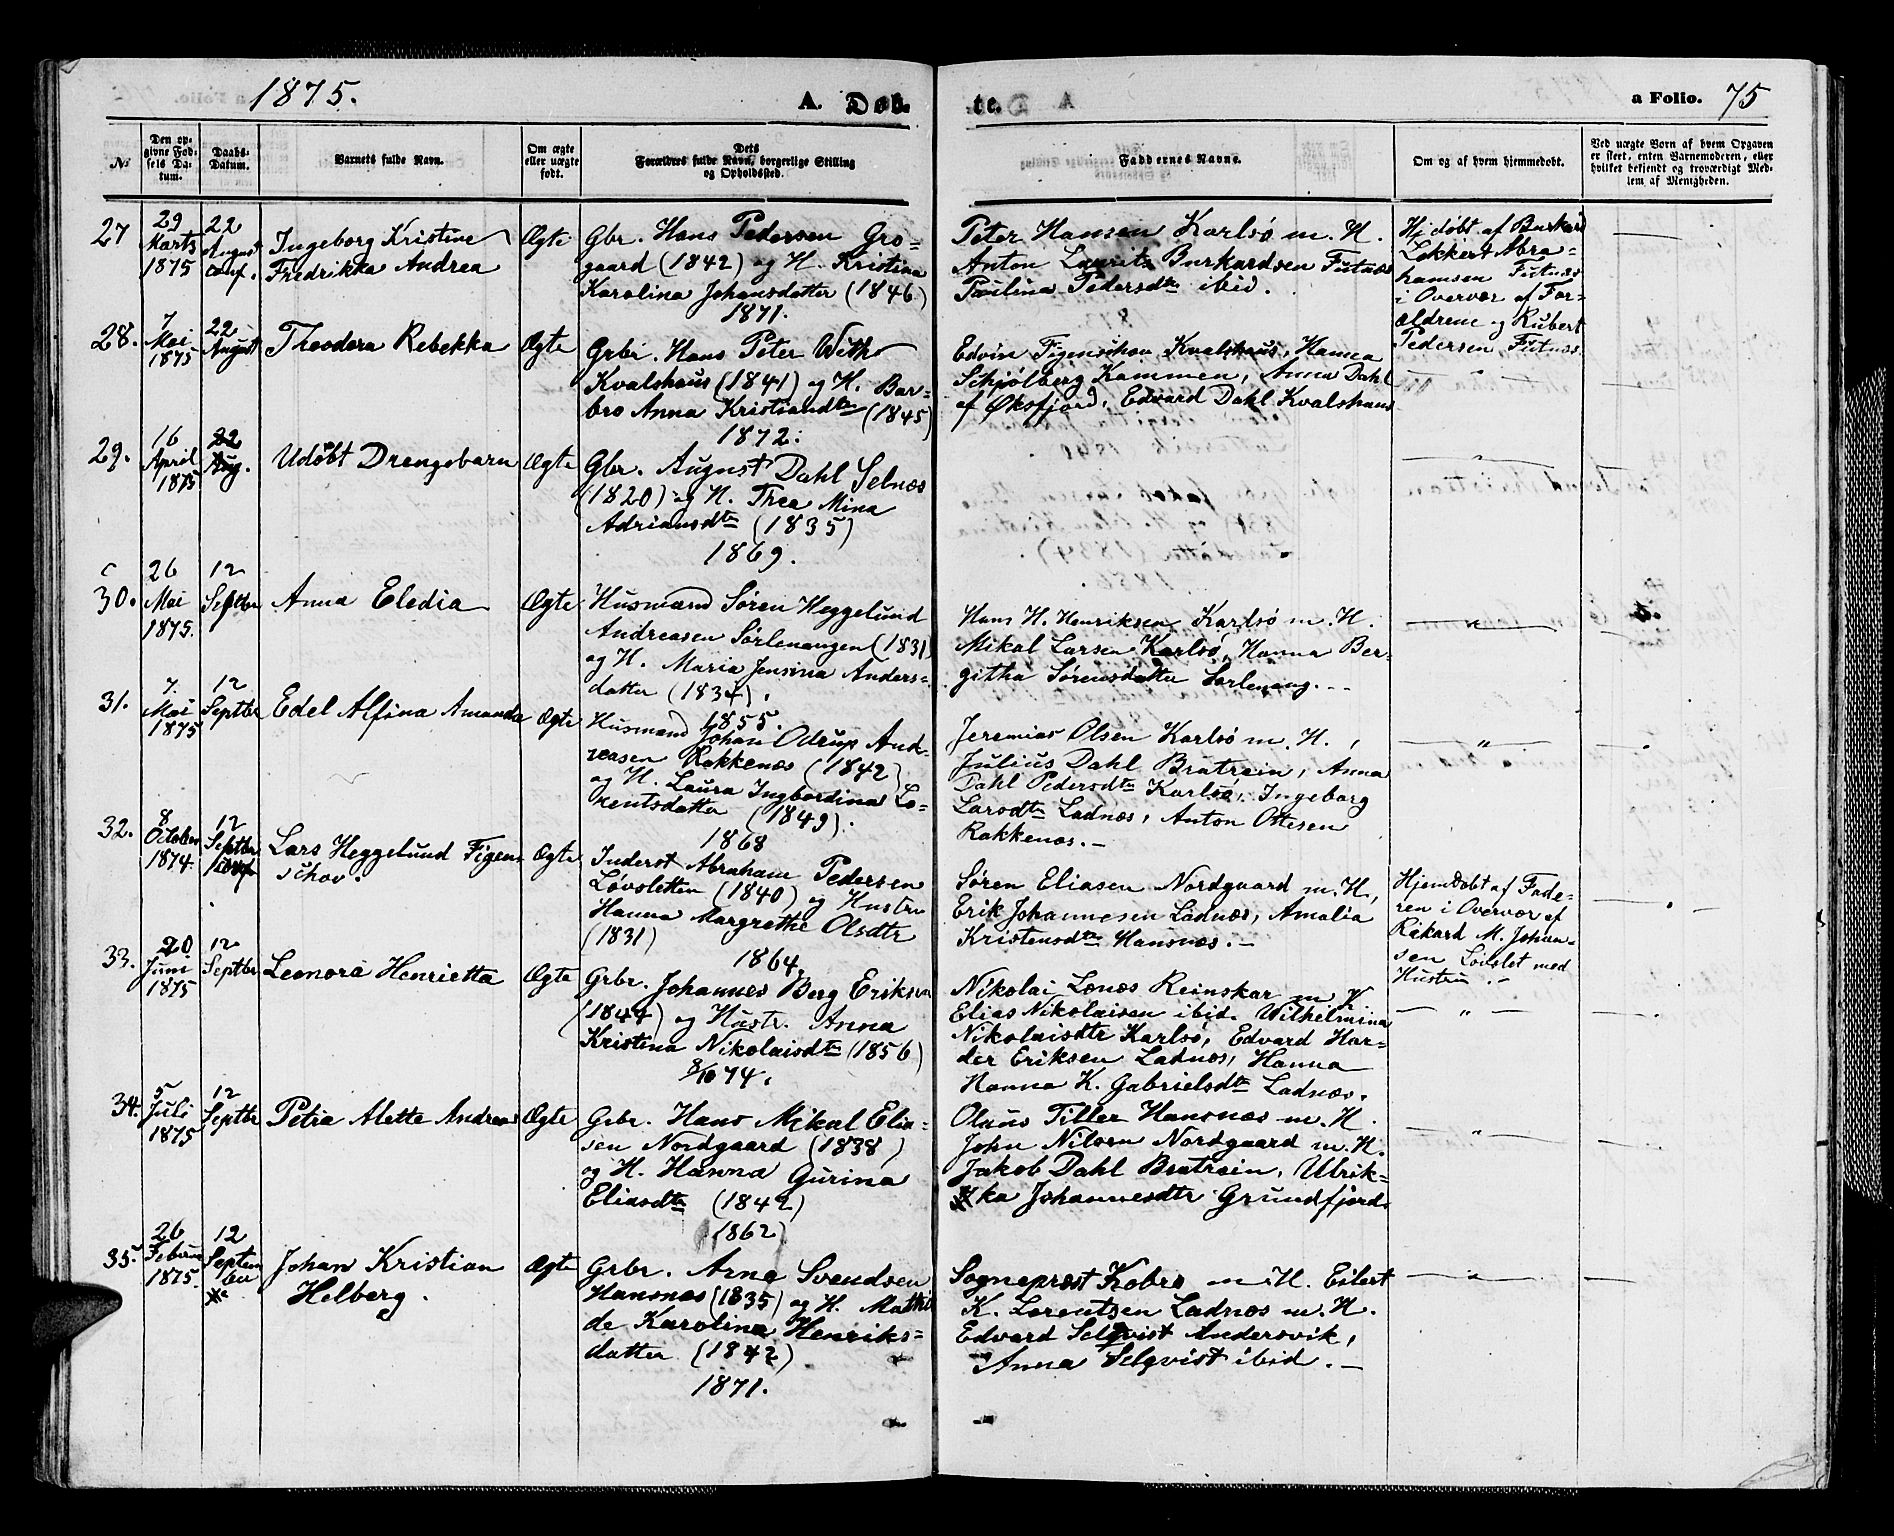 1875.
A. Døb-
te.
a Folio. 75
№
Den op-
givne Fød-
sels Da-
tum.
Daabs-
Datum.
Barnets fulde Navn.
Om ægte
eller uægte
født.
Dets
Forældres fulde Navn, borgerlige Stilling
og Opholdssted.
Faddernes Navne.
Om og af hvem hjemmedøbt.
Ved uægte Børn af hvem Opgaven
er skeet, enten Barnemoderen, eller
hvilket bekjendt og troværdigt Med-
lem af Menigheden.
27
29
Marts
1875
22
August
conf.
Ingeborg Kristine
Fredrikka Andrea
Ægte
Gbr. Hans Pedersen Gro-
gaard (1842) og H. Kristina
Karolina Johansdatter (1846)
1871.
Peter Hansen Karlsø m. H.
Anton Laurits Burkardsen Futnæs
Paulina Pedersdtr ibid.
Hjdøbt af Burkard
Lekkert Abra-
hamsen Futnæs
i Overvær af For-
ældrene og Rubert
Pedersen Futnæs.
28.
7
Mai
1875
22
August
Theodora Rebekka
Ægte
Grbr. Hans Peter With
Kvalshaus (1841) og H. Bar-
bro Anna Kristiandtr (1845)
1872.
Edvin Figenschou Kvalshaus, Hanna
Schjølberg Kammen, Anna Dahl
af Øksfjord, Edvard Dahl Kvalshaus
29.
16
April
1875
22
Aug.
Udøbt Drengebarn
Ægte
Gbr. August Dahl Selnæs
(1820) og H. Thea Mina
Adriansdtr (1835)
1869.
30.
26
Mai
1875.
12
Septbr
Anna Eledia
Ægte
Husmand Søren Heggelund
Andreasen Sørlenangen (1831)
og H. Maria Jensina Anders-
datter (1834).
1855.
Hans H. Henriksen Karlsø m. H.
Mikal Larsen Karlsø, Hanna Ber-
githa Sørensdatter Sørlenang. --
31.
7.
Mai
1875
12
Septbr
Edel Alfina Amanda
Ægte
Husmand Johan Odrup And-
reasen Rakkenæs (1842)
og H. Laura Ingbordina Lo-
rentsdatter (1849).
1868
Jeremias Olsen Karlsø m. H.,
Julius Dahl Bratrein, Anna
Dahl Pedersdtr Karlsø, Ingeborg
Larsdtr Ladnæs, Anton Ottesen
Rakkenæs. -
32.
8
October
1874.
12
Septbr
conf.
Lars Heggelund Figen-
schov.
Ægte
Inderst Abraham Pedersen
Løvsletten (1840) og Hustru
Hanna Margrethe Olsdtr
(1831)
1864,
Søren Eliasen Nordgaard m. H,
Erik Johannesen Ladnæs, Amalia
Kristensdtr Hansnæs. -
Hjemdøbt af Fade-
ren i Overvær af
Rikard M. Johan-
sen Løvslet med
Hustru. -
33.
20
Juni
1875
12
Septbr
Leonora Henrietta
Ægte
Grbr. Johannes Berg Eriksen
(1844) og Hustr. Anna
Kristina Nikolaisdtr (1856)
8/10 74.
Nikolai Lenæs Reinskar m. H
Elias Nikolaisen ibid. Wilhelmina
Nikolaisdtr Karlsø, Edvard Har-
der Eriksen Ladnæs, Hanna
Hanna K. Gabrielsdtr Ladnæs.
34.
5
Juli
1875
12
Septbr
Petra Alette Andrea
Ægte
Grbr. Hans Mikal Elia-
sen Nordgaard (1838)
og H. Hanna Gurina
Eliasdtr (1842)
1862
Olaus Tiller Hansnæs m. H.
John Nilsen Nordgaard m. H.
Jakob Dahl Bratrein, Ulrik-
ka Johannesdtr Grundfjord.
35.
26
Februar
1875.
12
Septem
ber
Johan Kristian
Helberg.
Ægte
Grbr. Arne Svendsen
Hansnæs (1835) og H. Mathil
de Karolina Henriks-
datter (1842)
1871.
Sogneprest Kobro m. H. Eilert
K. Lorentsen Ladnæs m. H.
Edvard Selqvist Andersvik,
Anna Selqvist ibid. -